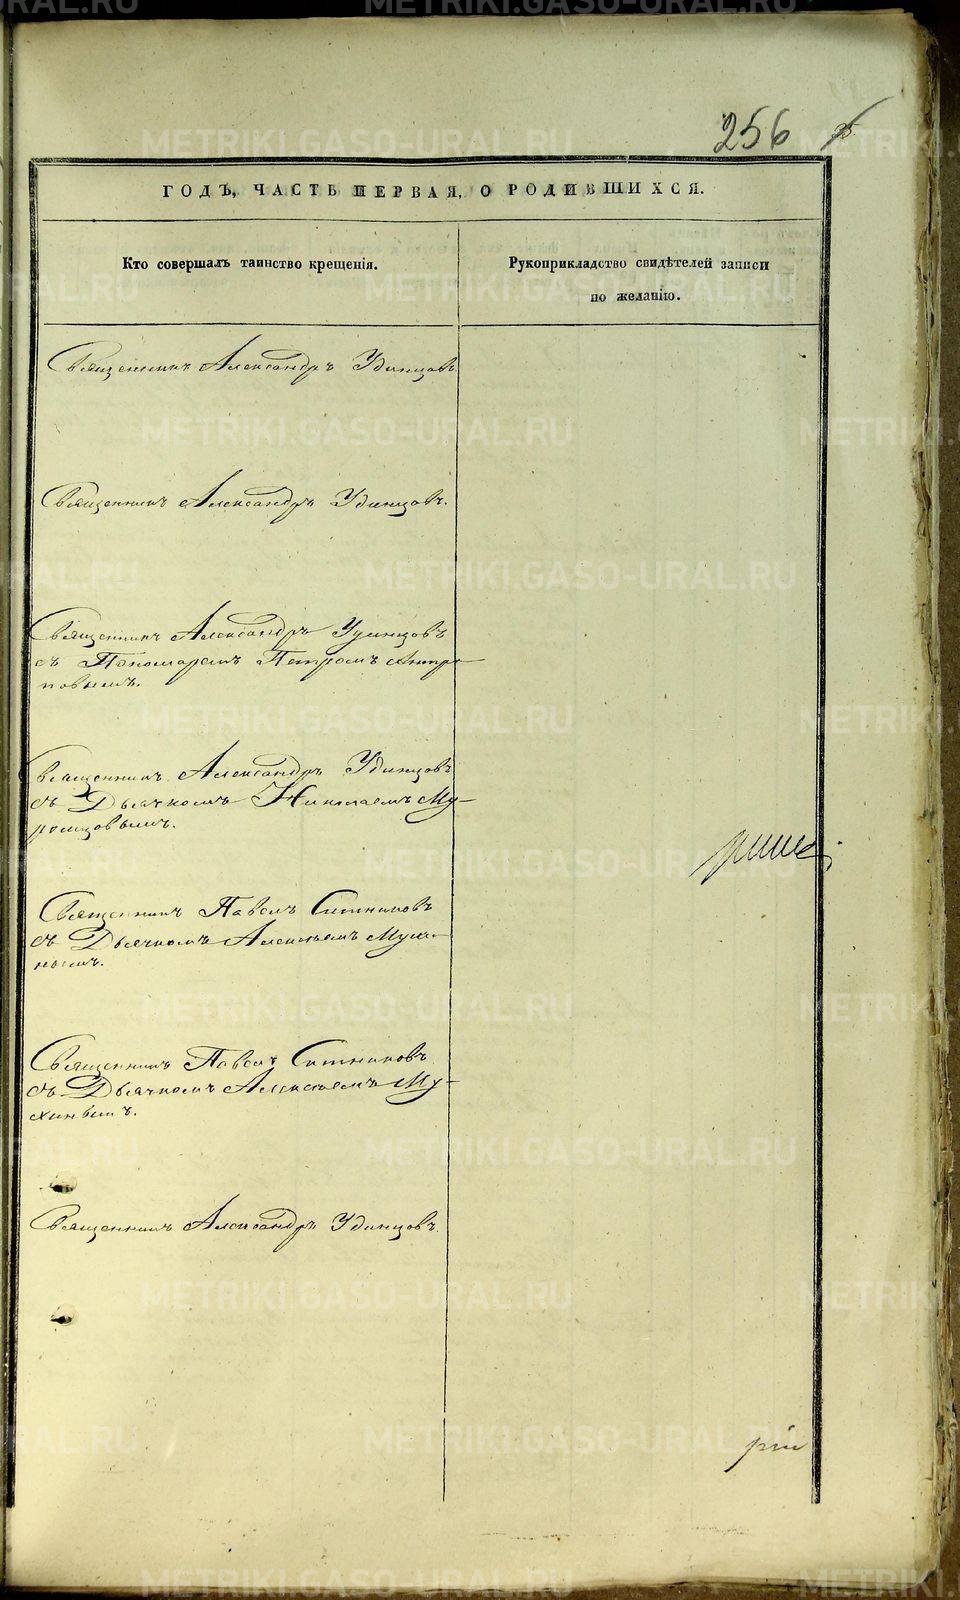 256
ГОДЪ, ЧАСТЬ ПЕРВАЯ, О РОДИВШИХСЯ.
Кто совершалъ таинство крещенія.
Рукоприкладство свидѣтелей записи
по желанію.
Священникъ Александръ Удинцовъ
Священникъ Александръ Удинцовъ.
Священникъ Александръ Удинцовъ
съ Пономаремъ Петромъ Антро-
повымъ.
Священникъ Александръ Удинцовъ
съ Дьячкомъ Николаемъ Му-
ромцовымъ.
Священникъ Павелъ Ситниковъ
съ Дьячкомъ Алексѣемъ Мухи-
нымъ.
Священникъ Павелъ Ситниковъ
съ Дьячкомъ Алексѣемъ Му-
хинымъ.
Священникъ Александръ Удинцовъ.
METRIKI.GASO-URAL.RU